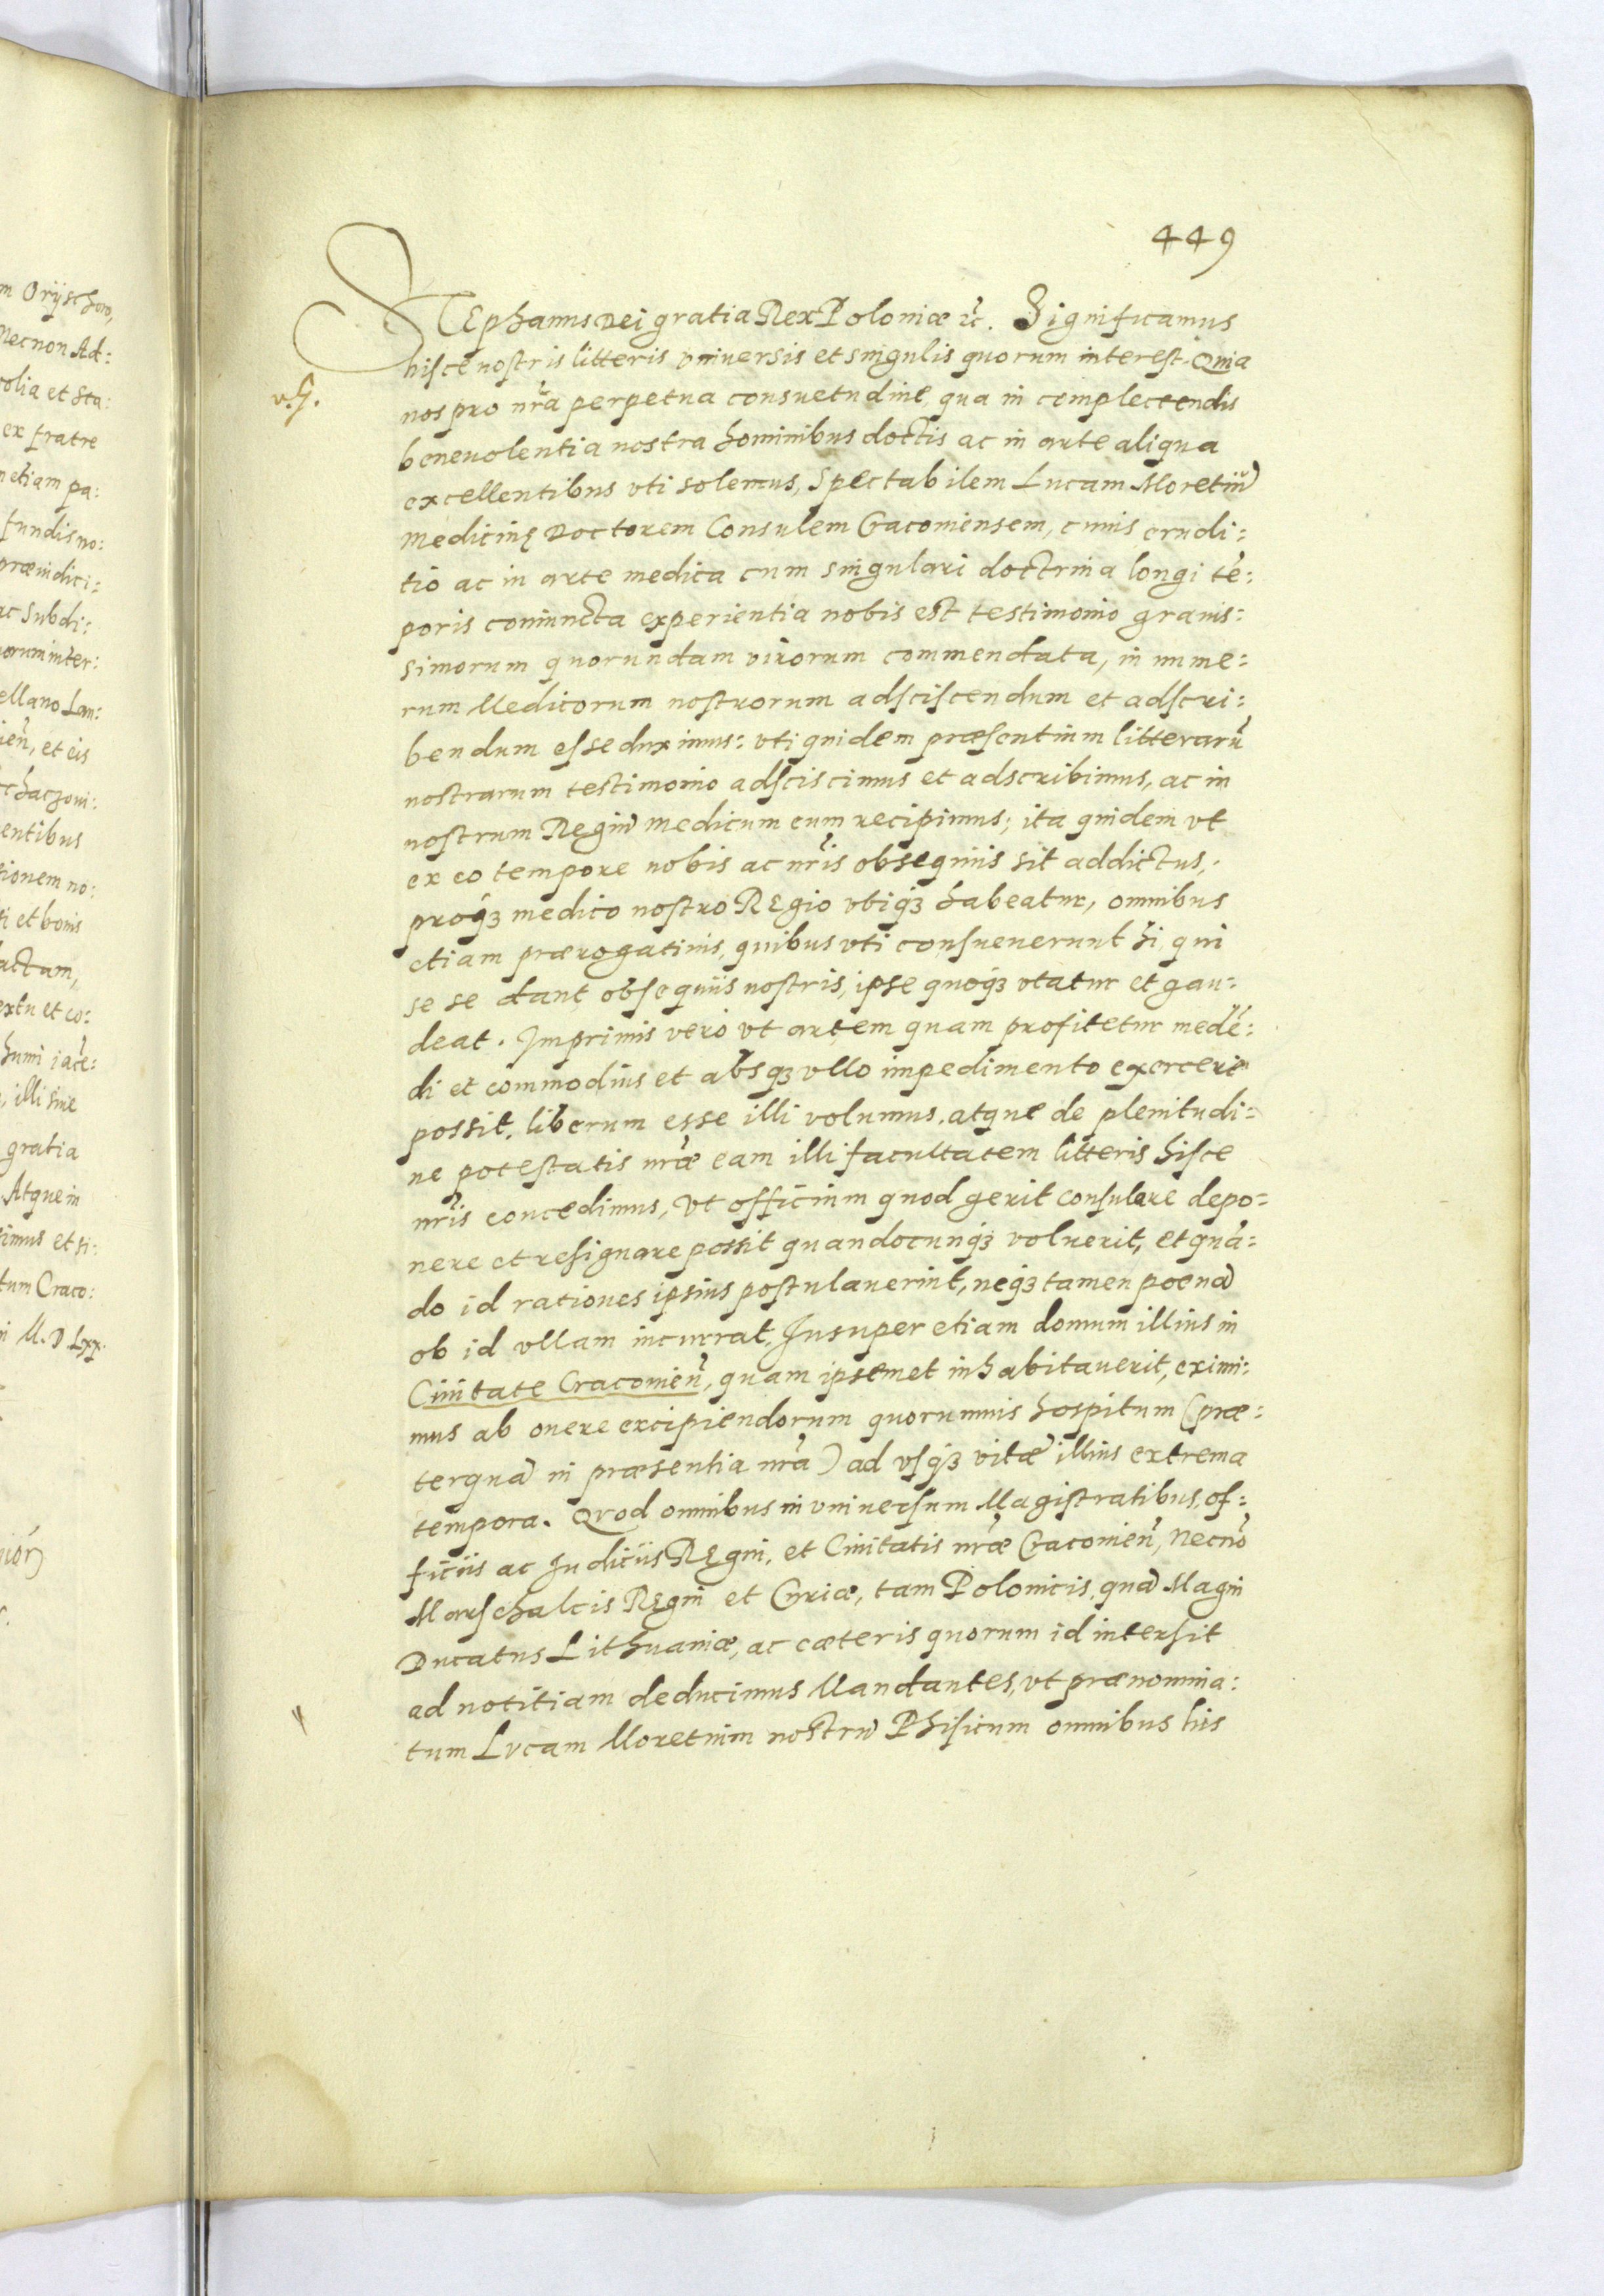 449
STEphanus Dei gratia Rex Poloniæ ꝛc̃. Significamus
hisce nostris litteris vniuersis et singulis quorum interest. Quia
v. G.
nos pro nr̃a perpetua consuetudine, qua in complectendis
beneuolentia nostra hominibus doctis ac in arte aliqua
excellentibus vti solemus, Spectabilem Lucam Moretiũ
Medicinę Doctorem Consulem Cracouiensem, cuius erudi:
tio ac in arte medica cum singulari doctrina longi tẽ:
poris coniuncta experientia nobis est testimonio grauis:
simorum quorundam virorum commendata, in nume:
rum Medicorum nostrorum adsciscendum et adscri:
bendum esse duximus: vti quidem præsentium litterarũ
nostrarum testimonio adsciscimus et adscribimus, ac in
nostrum Regiũ medicum eum recipimus; ita quidem vt
ex eo tempore nobis ac nr̃is obsequiis sit addictus,
proq̃ȝ medico nostro REgio vbiqȝ habeatur, omnibus
etiam prærogatiuis, quibus vti consueuerunt hi, qui
se se dant obsequiis nostris, ipse quoqȝ vtatur et gau:
deat. Imprimis vero vt artem quam profitetur medẽ:
di et commodius et absqȝ vllo impedimento exercere
possit, liberum esse illi volumus, atque de plenitudi:
ne potestatis nr̃æ eam illi facultatem litteris hisce
nr̃is concedimus, vt officium quod gerit consulare depo:
nere et resignare possit quandocunqȝ voluerit, et quã:
do id rationes ipsius postulauerint, neqȝ tamen poenã
ob id vllam incurrat. Insuper etiam domum illius in
Ciuitate Cracouieñ, quam ipsemet inhabitauerit, eximi:
mus ab onere excipiendorum quorumuis hospitum (præ:
terquã in præsentia nr̃a) ad vsqȝ vitæ illius extrema
tempora. Qvod omnibus in vniuersum Magistratibus, of:
ficiis ac Iudiciis REgni, et Ciuitatis nr̃æ Cracouieñ, Necnõ
Marschalcis REgni et Curiæ, tam Polonicis, quã Magni
Ducatus Lithuaniæ, ac cæteris quorum id intersit
ad notitiam deducimus Mandantes, vt prænomina:
tum Lvcam Moretium nostrũ Phisicum omnibus his
m Oryschow,
Necnon Ad:
ex fratre
netiam pa:
fundis no:
præiudici:
ac Subdi:
orum inter:
ellano Lan:
ieñ, et eis
entibus
tionem no:
ti et bonis
actam,
extu et co:
humi iacẽ:
, illi siue
gratia
Atque in
simus et si:
tum Craco:
i M. D. Lxx.